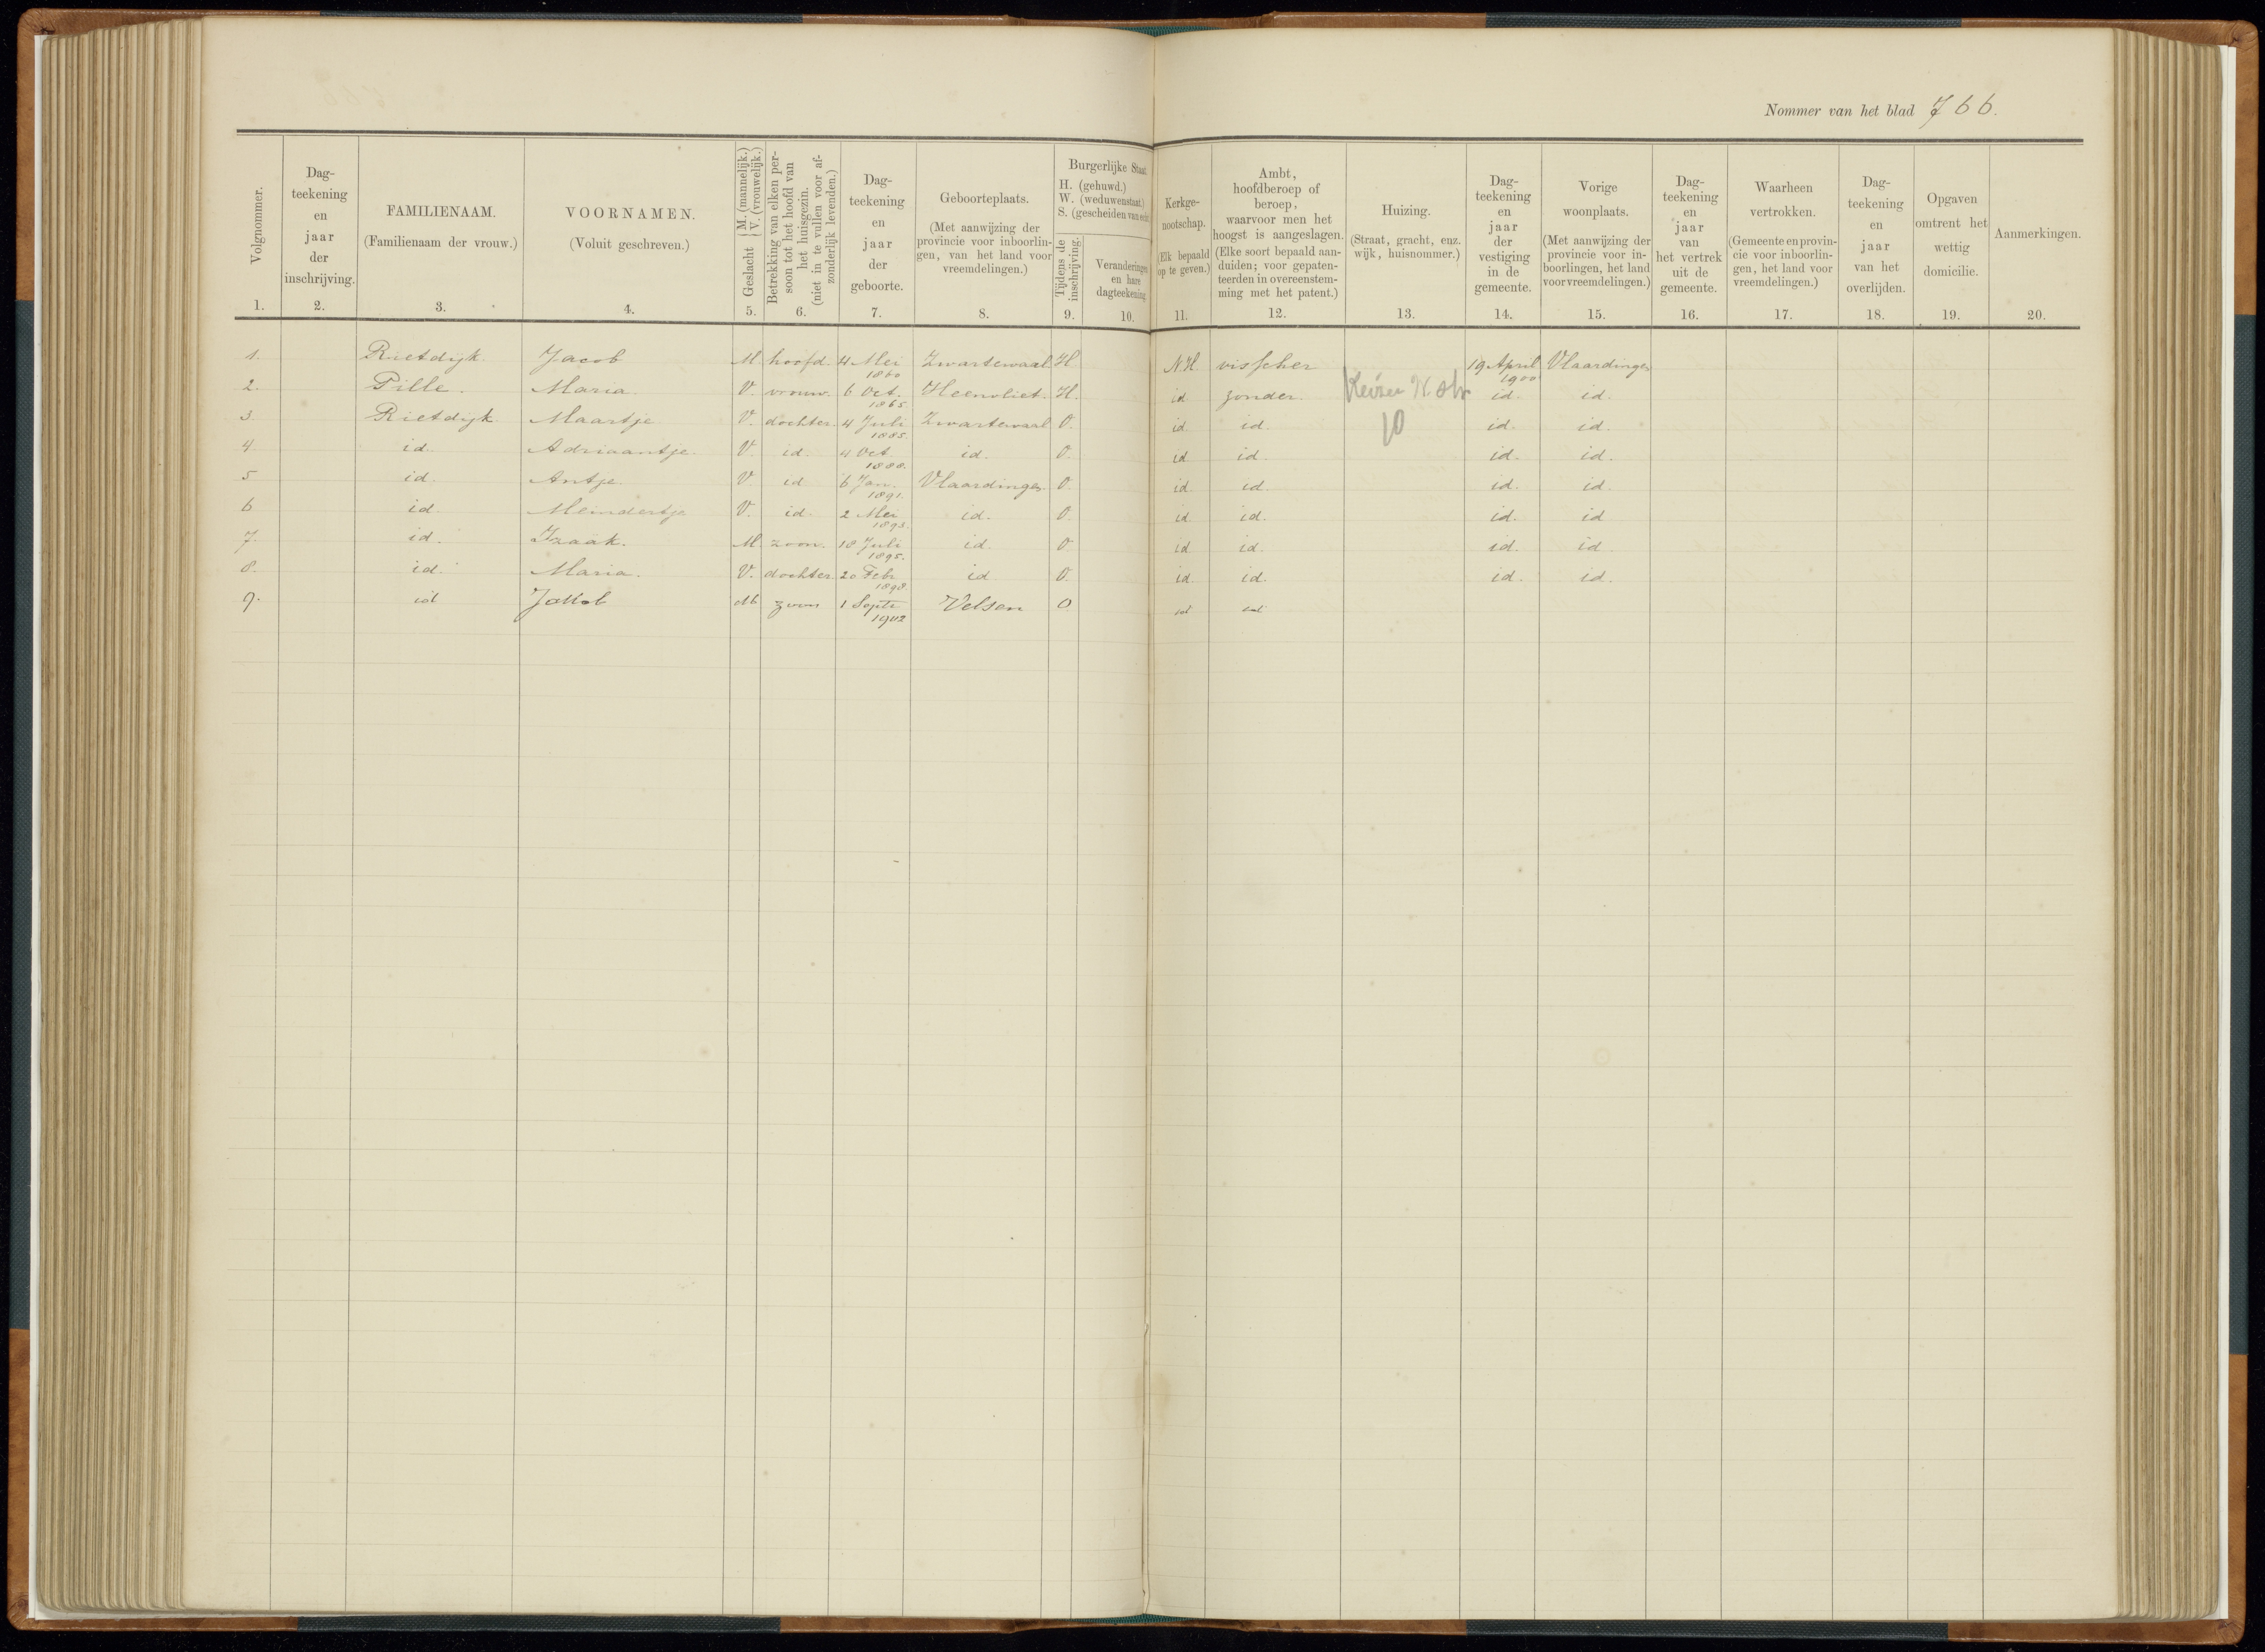 Nommer van het blad 766.
Volgnommer. 1.
Dag-
teekening
en
jaar
der
inschrijving.
2.
FAMILIENAAM.
(Familienaam der vrouw.)
3.
VOORNAMEN.
(Voluit geschreven.)
4.
Geslacht { M. (mannelijk.) V. (vrouwelijk.)
5.
Betrekking van elken per-
soon tot het hoofd van
het huisgezin.
(niet in te vullen voor af-
zonderlijk levenden.)
6.
Dag-
teekening
en
jaar
der
geboorte.
7.
Geboorteplaats.
(Met aanwijzing der
provincie voor inboorlin-
gen, van het land voor
vreemdelingen.)
8.
Burgerlijke Staat
H. (gehuwd.)
W. (weduwenstaat.)
S. (gescheiden van echt
Tijdens de
inschrijving.
9.
Veranderingen
en hare
dagteekening
10.
Kerkge-
nootschap.
(Elk bepaald
op te geven.)
11.
Ambt,
hoofdberoep of
beroep,
waarvoor men het
hoogst is aangeslagen.
(Elke soort bepaald aan-
duiden; voor gepaten-
teerden in overeenstem-
ming met het patent.)
12.
Huizing.
(Straat, gracht, enz.
wijk, huisnommer.)
13.
Dag-
teekening
en
jaar
der
vestiging
in de
gemeente.
14.
Vorige
woonplaats.
(Met aanwijzing der
provincie voor in-
boorlingen, het land
voor vreemdelingen.)
15.
Dag-
teekening
en
jaar
van
het vertrek
uit de
gemeente.
16.
Waarheen
vertrokken.
(Gemeente en provin-
cie voor inboorlin-
gen, het land voor
vreemdelingen.)
17.
Dag-
teekening
en
jaar
van het
overlijden.
18.
Opgaven
omtrent het
wettig
domicilie.
19.
Aanmerkingen.
20.
1. Rietdijk Jacob M. hoofd. 4 Mei 1860 Zwartewaal H N.H. visscher 19 April 1900 Vlaardingen
2. Pille. Maria V. vrouw. 6 Oct. 1865 Heenvliet. H. id zonder. id. id.
3 Rietdijk Maartje V. dochter. 4 Juli 1885. Zwartewaal O. id id. 10 id. id.
4 id. Adriaantje. V. id. 4 Oct 1888. id. O. id id. id. id.
5 id. Antje V id 6 Jan. 1891. Vlaardingen. O. id. id. id. id.
6 id. Meindertje V. id. 2 Mei 1893. id. O id. id. id. id
7. id. Izaäk. M. zoon. 18 Juli 1895. id O id id. id. id.
8. id. Maria. V. dochter. 20 Febr. 1898. id O. id. id. id. id.
9. id Jakob M zoon 1 Septr 1902 Velsen O id id